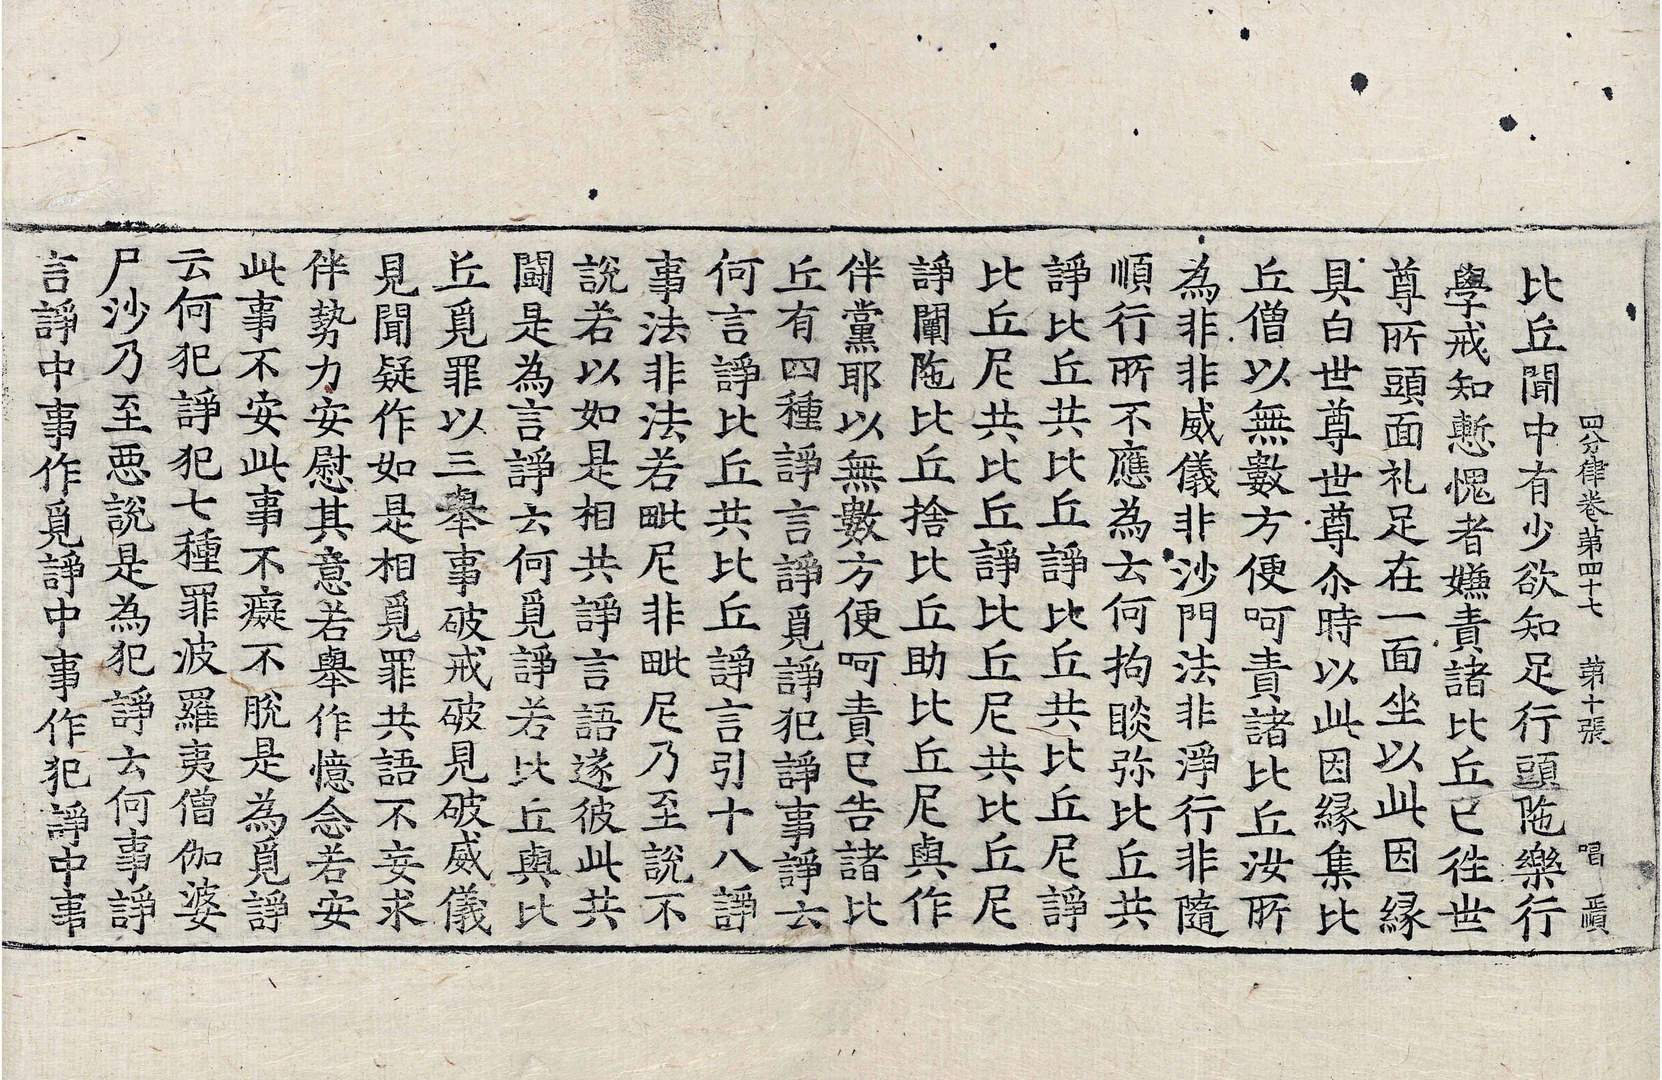 四分律卷第四十七　第十張　唱　禛
比丘聞中有少欲知足行頭陁樂行
學戒知慙愧者嫌責諸比丘已徃世
尊所頭面礼足在一面坐以此因緣
具白世尊世尊尒時以此因緣集比
丘僧以無數方便呵責諸比丘汝所
為非非威儀非沙門法非淨行非隨
順行所不應為云何拘睒弥比丘共
諍比丘共比丘諍比丘共比丘尼諍
比丘尼共比丘諍比丘尼共比丘尼
諍闡陁比丘捨比丘助比丘尼與作
伴黨耶以無數方便呵責已告諸比
丘有四種諍言諍覓諍犯諍事諍云
何言諍比丘共比丘諍言引十八諍
事法非法若毗尼非毗尼乃至說不
說若以如是相共諍言語遂彼此共
鬪是為言諍云何覓諍若比丘與比
丘覓罪以三舉事破戒破見破威儀
見聞疑作如是相覓罪共語不妄求
伴勢力安慰其意若舉作憶念若安
此事不安此事不癡不脫是為覓諍
云何犯諍犯七種罪波羅夷僧伽婆
尸沙乃至惡說是為犯諍云何事諍
言諍中事作覓諍中事作犯諍中事